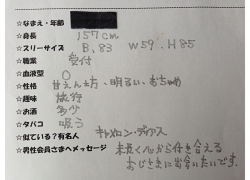 ☆なまえ・年齢
☆身長 157cm
☆スリーサイズ B.83 W59.H85
☆職業 受付
☆血液型 O
☆性格 甘えん方、明るい、おちゃめ
☆趣味 旅行
☆お酒 多少
☆タバコ 吸う
☆似ている?有名人 キャメロン・ディアス
☆男性会員さまへメッセージ 末長く心から付き合える
おじさまに出会いたいです。